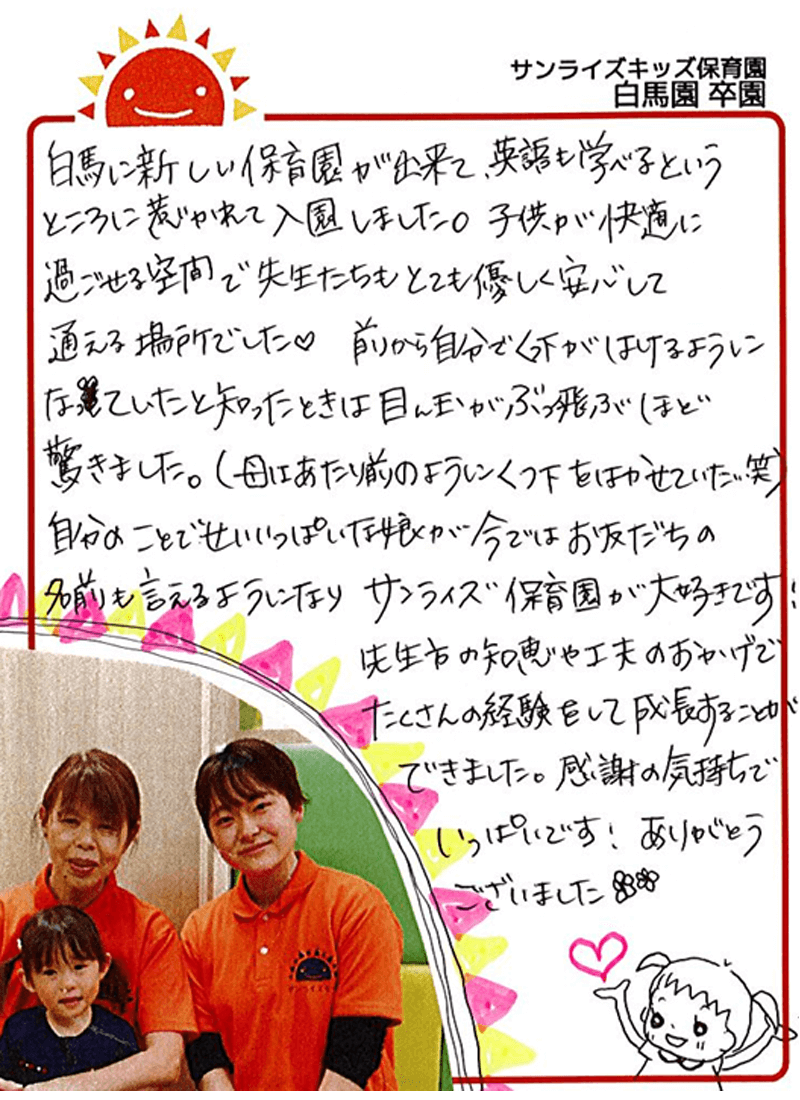 サンライズキッズ保育園
白馬園 卒園
白馬に新しい保育園が出来て、英語も学べるという
ところに惹かれて入園しました。子供が快適に
過ごせる空間で先生たちもとても優しく安心して
通える場所でした♡ 前から自分でくつ下がはけるように
なっていたと知ったときは目ん玉がぶっ飛ぶほど
驚きました。(母はあたり前のようにくつ下をはかせていた…笑)
自分のことでせいいっぱいな娘が今ではお友だちの
名前も言えるようになり サンライズ保育園が大好きです!
先生方の知恵や工夫のおかげで
たくさんの経験をして成長することが
できました。感謝の気持ちで
いっぱいです! ありがとう
ございました
サンライズキッズ